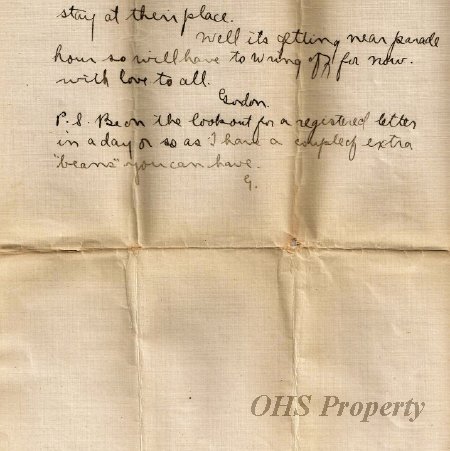 stay at their place.
Well its getting near parade
hour so will have to wring off for now.
with love to all.
Gordon.
P.S. Be on the lookout for a registered letter
in a day or so as I have a couple of extra
"beans" you can have.
G.
OHS Property